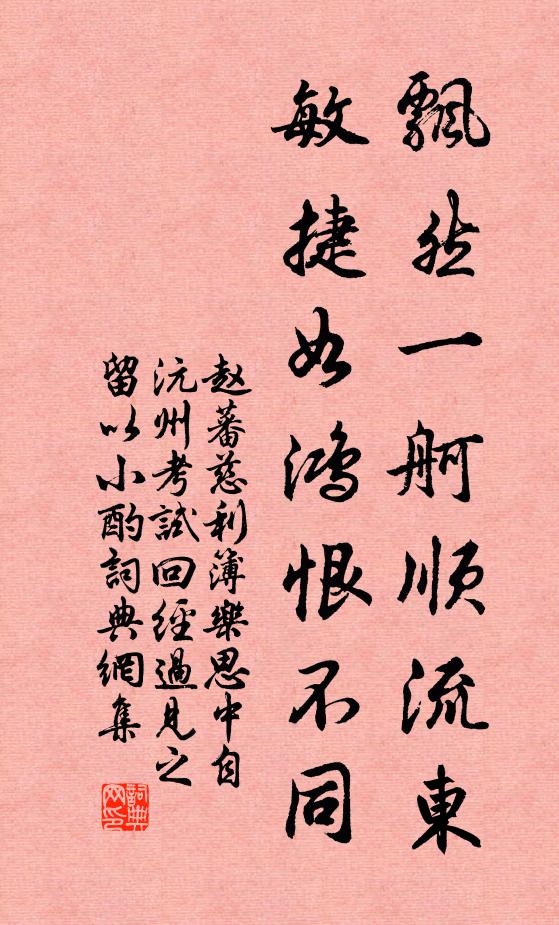 飄然一舸順流東
敏捷如鴻恨不同
赵蕃慈利簿樂思中自
沅州考試回經過見之
留以小酌詞典網集
詞典
网印